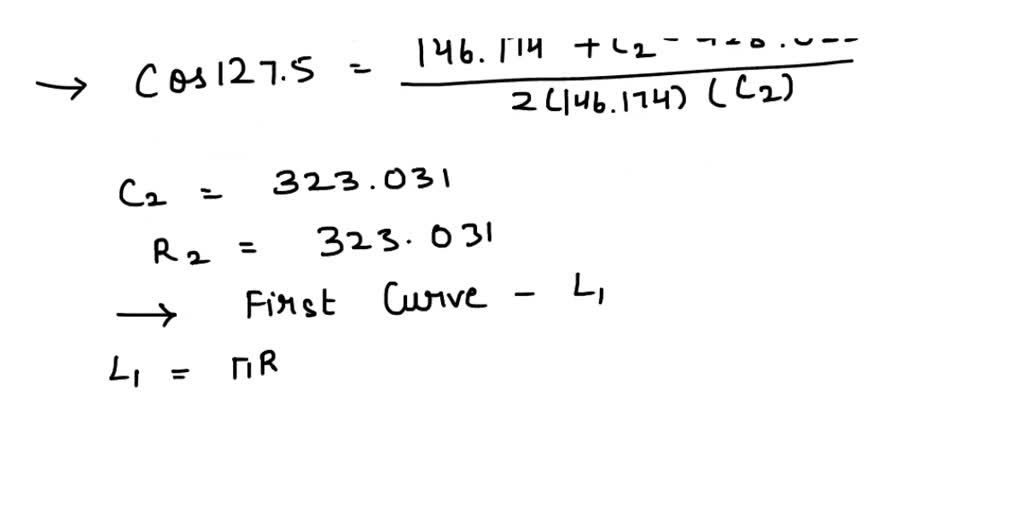 → Cos 127.5 = 146.174 + C2 -
2(146.174) (C2)
C2 = 323.031
R2 = 323.031
→ First Curve - L1
L1 = πR